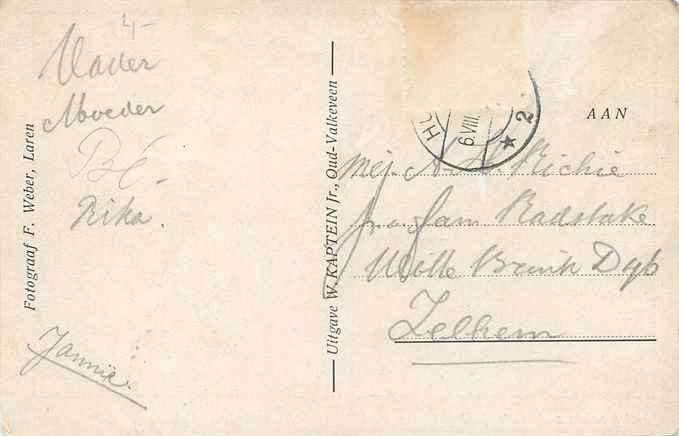 4-
Vader
Moeder
Bé
Rika.
Jannie.
Fotograaf F. Weber, Laren
Uitgave W. KAPTEIN Jr., Oud-Valkeveen
H
6.VIII.
2
AAN
Mej. A. H. Richie
p.a. fam. Radstake
Wolle Brink Dijk
Zelhem